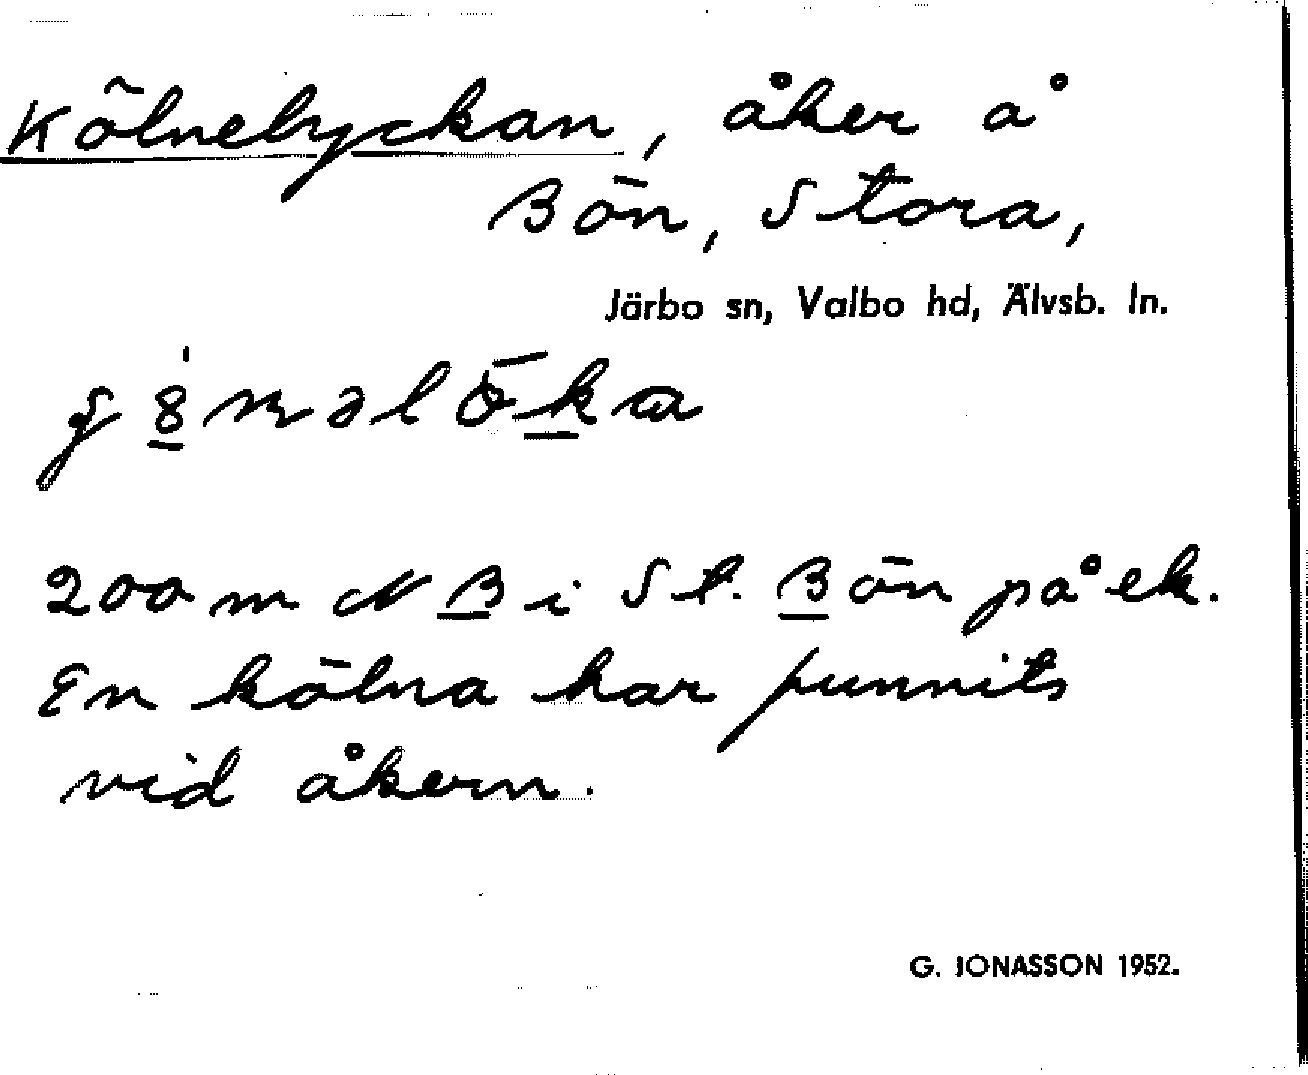 Kölnelyckan, åker å
Bön, Stora,
Järbo sn, Valbo hd, Älvsb. ln.
200 m N B i St. Bön på ek.
En kölna har funnits
vid åkern.
G. JONASSON 1952.